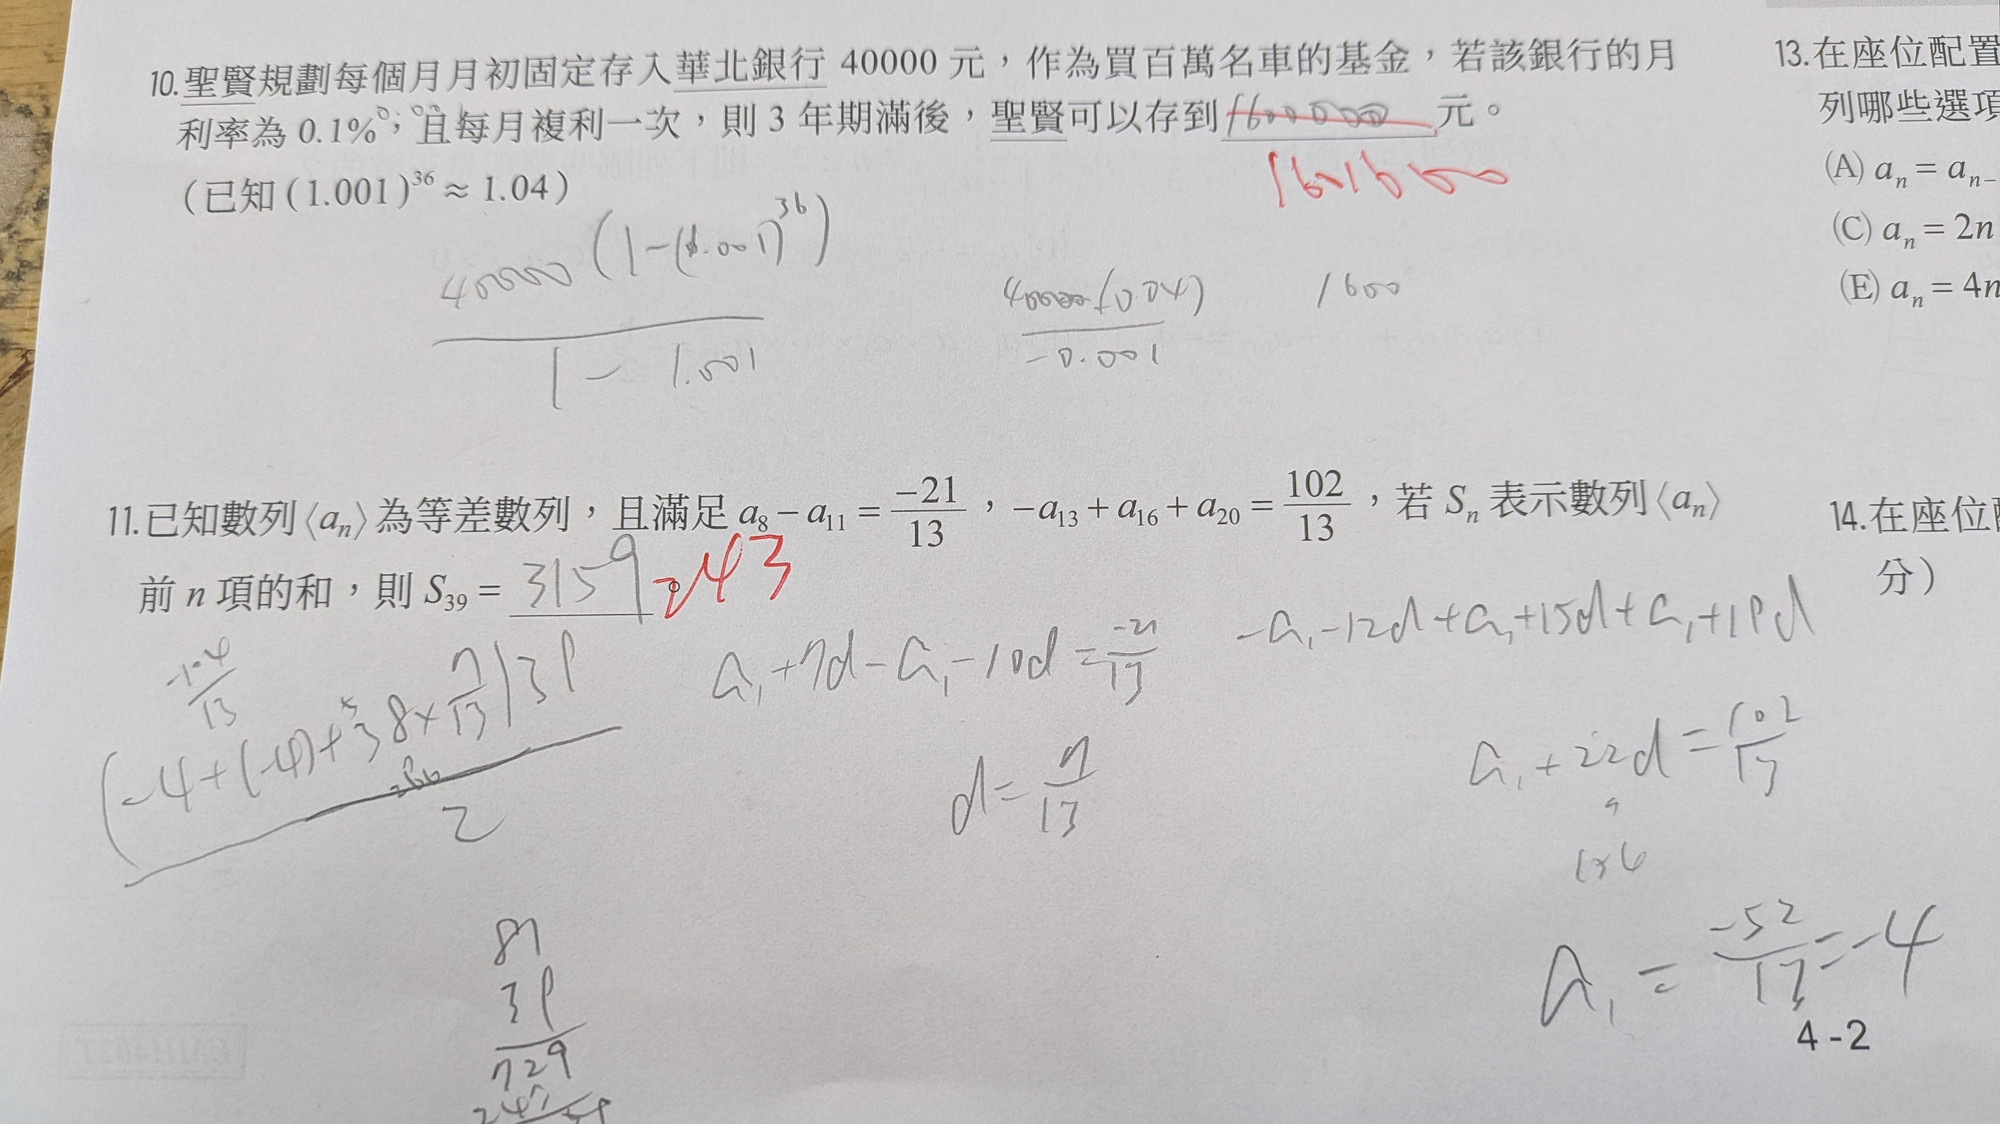 10.聖賢規劃每個月月初固定存入華北銀行 40000 元，作為買百萬名車的基金，若該銀行的月
利率為 0.1%，且每月複利一次，則 3 年期滿後，聖賢可以存到 1600000 元。
1601600
（已知 (1.001)^36 ≈ 1.04）
40000(1-(1.001)^36)
1 - 1.001
40000(0.04)
-0.001
1600
11.已知數列⟨a_n⟩為等差數列，且滿足 a_8 - a_11 = -21/13，-a_13 + a_16 + a_20 = 102/13，若 S_n 表示數列⟨a_n⟩
前 n 項的和，則 S_39 = 3159。
243
-104/13
(-4+(-4)+38×7/13)39
2
a_1+7d-a_1-10d=-21/13
d=7/13
-a_1-12d+a_1+15d+a_1+19d
a_1+22d=102/13
a_1=-52/13=-4
81
39
729
4-2
13.在座位配置
列哪些選項
(A) a_n = a_n-
(C) a_n = 2n
(E) a_n = 4n
14.在座位
分）